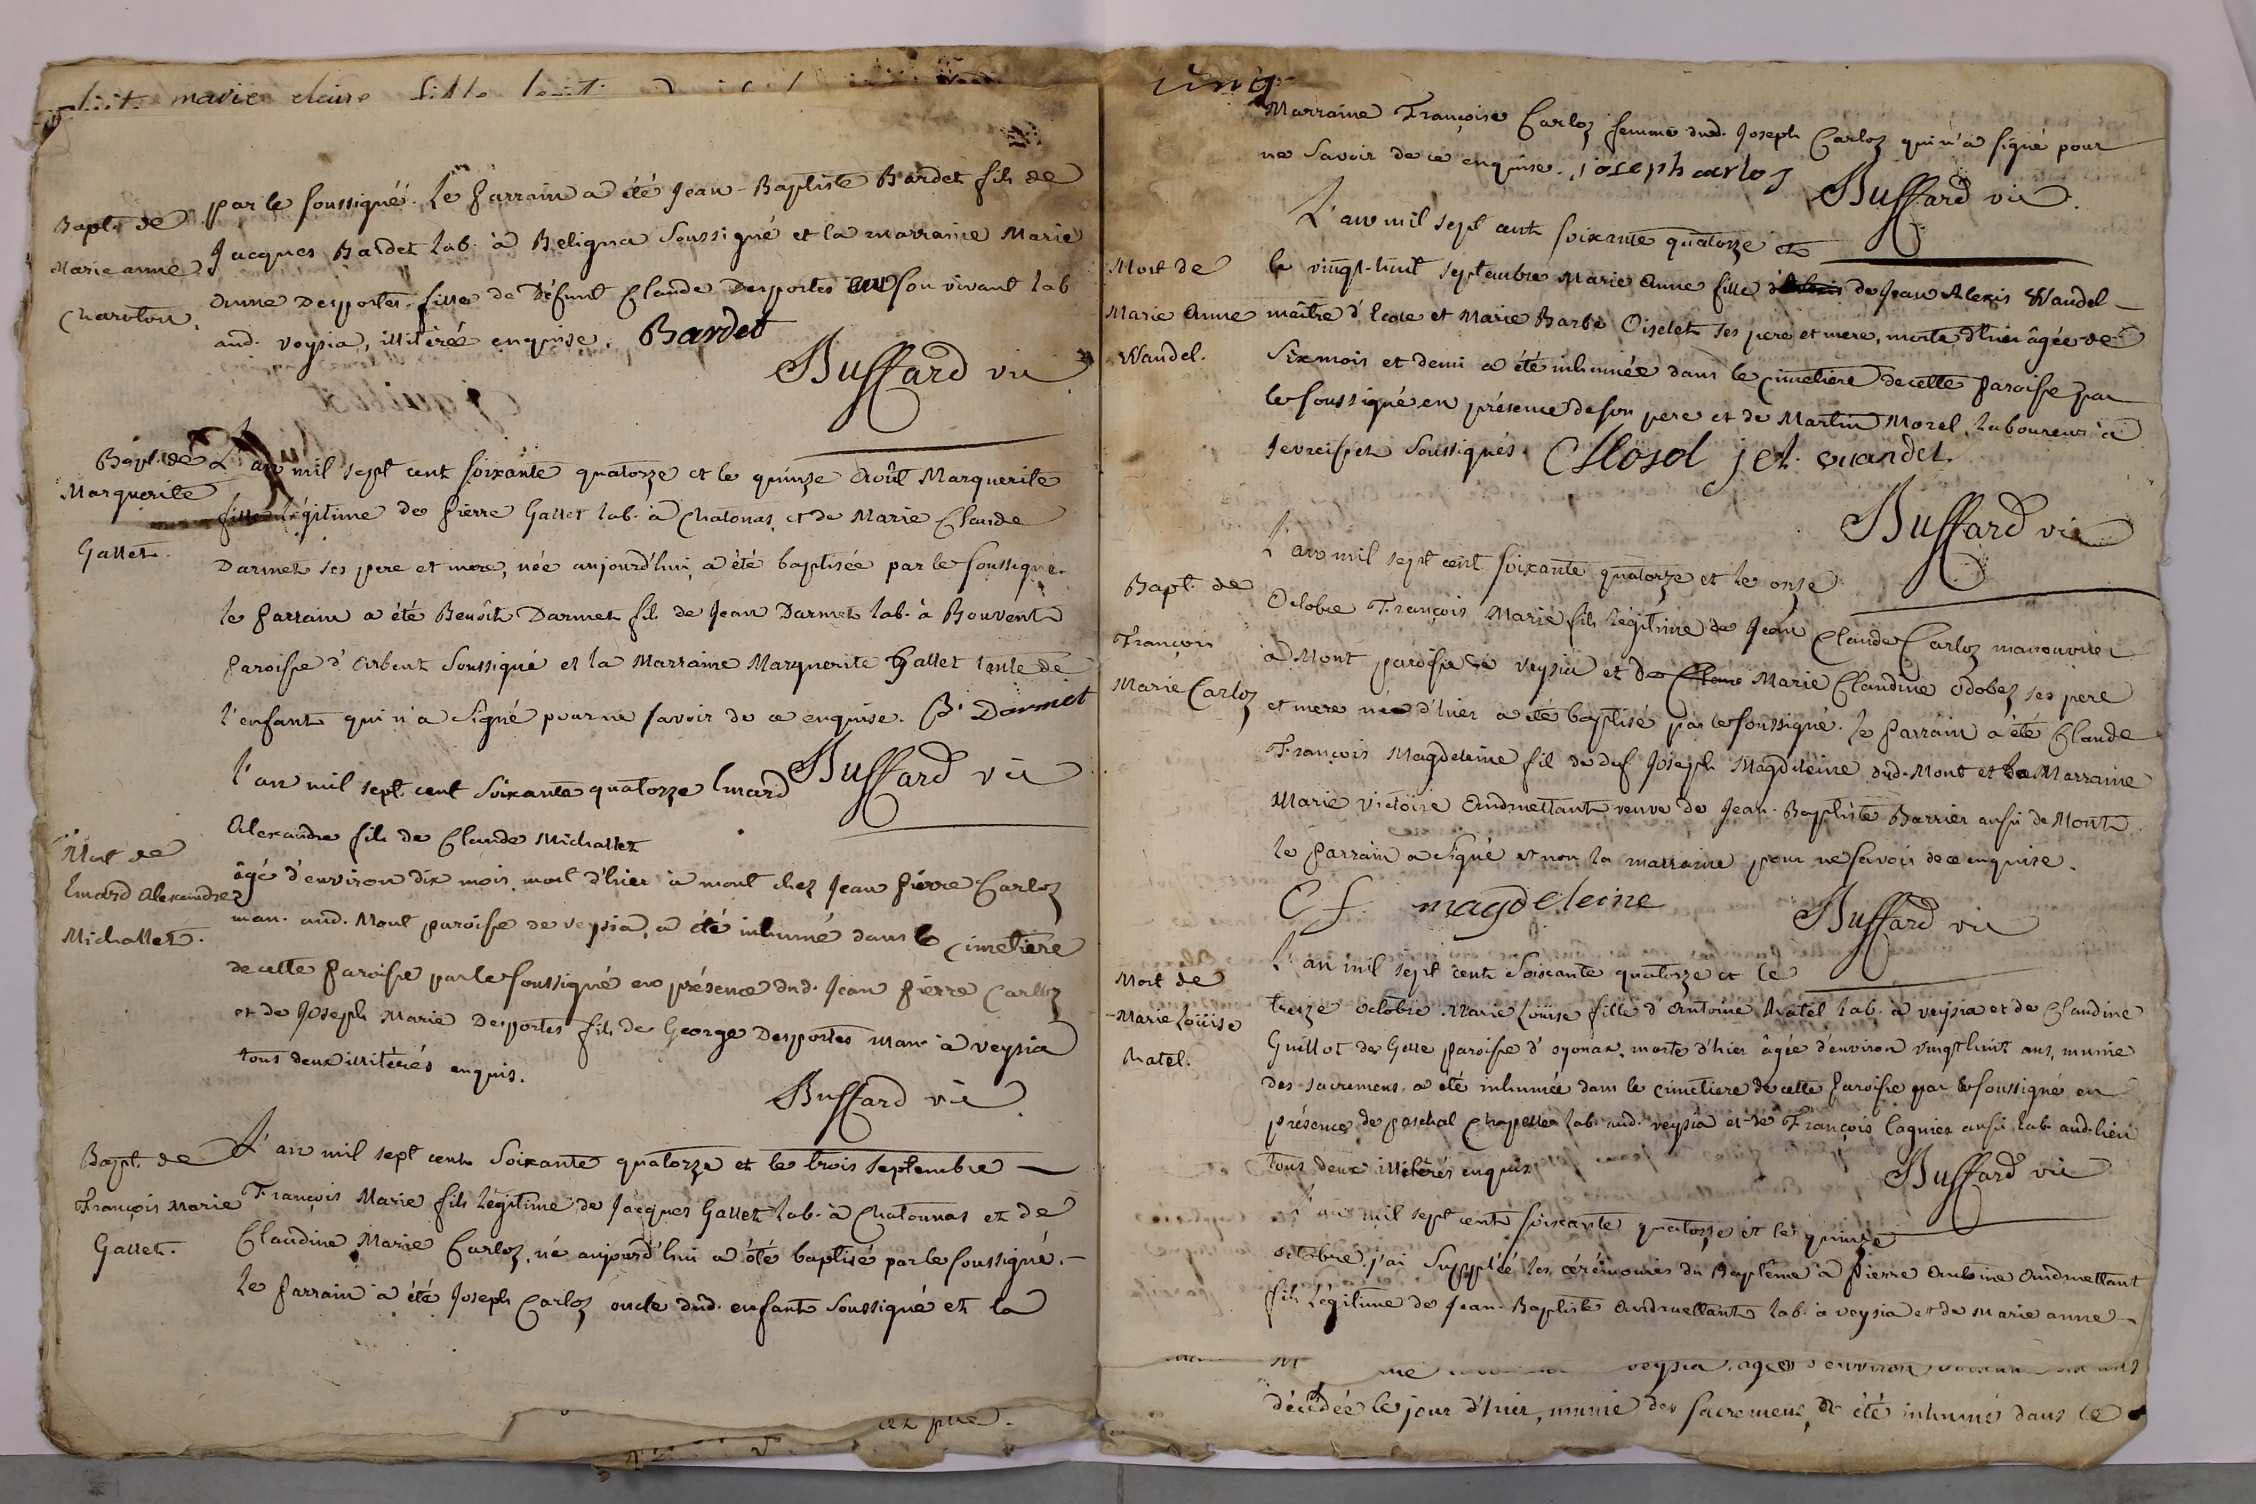 marie claire fille
par le soussigné. Le Parrain a été Jean-Baptiste Bardet fils de
Bapt. de
Jacques Bardet lab. à Beligna Soussigné et la marraine Marie
Marie anne
Anne Desportes fille de Défunt Claude Desportes en son vivant lab
Charoton.
aud. veysia, illitérée enquise. Bardet
Buffard vic
Bapt. de
L'an mil sept cent soixante quatorze et le quinze Août Marguerite
Marguerite
fille légitime de Pierre Gallet lab. à Chatonas et de Marie Claude
Gallet.
Darmet ses pere et mere, née aujourd'hui, a été baptisée par le soussigné.
le Parrain a été Benoît Darmet fils de Jean Darmet lab. à Bouvent
Paroisse d'Arbent Soussigné et la Marraine Marguerite Gallet tante de
l'enfant qui n'a signé pour ne savoir de ce enquise. B. Darmet
Buffard vic
l'an mil sept cent soixante quatorze Emard
Alexandre fils de Claude Michallet
Mort de
âgé d'environ dix mois, mort d'hier à mont chez Jean Pierre Carloz
Emard Alexandre
man. aud. Mont paroisse de veysia, a été inhumé dans le cimetière
Michallet.
de cette Paroisse par le soussigné en présence dud. Jean Pierre Carloz
et de Joseph Marie Desportes fils de George Desportes man. à veysia
tous deux illitérés enquis.
Buffard vic
Bapt. de
L'an mil sept cent Soixante quatorze et le trois septembre
François Marie
François Marie fils légitime de Jacques Gallet lab. à Chatonnas et de
Gallet.
Claudine Marie Carloz, né aujourd'hui a été baptisé par le soussigné.
le Parrain a été Joseph Carloz oncle dud. enfant Soussigné et la
Marraine Françoise Carloz femme dud. Joseph Carloz qui n'a signé pour
ne savoir de ce enquise. joseph carloz
Buffard vic.
L'an mil sept cent soixante quatorze et
Mort de
le vingt-huit septembre Marie Anne fille de Jean Alexis Wandel
Marie Anne
maître d'Ecole et Marie Barbe Oiselet ses pere et mere, morte d'hier âgée de
Wandel.
Six mois et demi a été inhumée dans le cimetière de cette Paroisse par
le soussigné en présence de son pere et de Martin Morel, laboureur à
Soussignés.
Buffard vic
L'an mil sept cent soixante quatorze et le onze
Bapt. de
Octobre François Marie fils légitime de Jean Claude Carloz manouvrier
François
à Mont paroisse de Veysia et de Marie Claudine Odobez ses pere
Marie Carloz
et mere né d'hier a été baptisé par le soussigné. le Parrain a été Claude
François Magdeleine fil de def Joseph Magdeleine dud. Mont et la Marraine
Marie victoire Andruettant veuve de Jean-Baptiste Barrier aussi de Mont
le Parrain a signé et non la marraine pour ne savoir de ce enquise.
C f. magdeleine
Buffard vic
L'an mil sept cent Soixante quatorze et le
Mort de
treize octobre Marie Loüise fille d'Antoine hatel lab. à veysia et de Claudine
Marie Loüise
Guillot de Gesse paroisse d'oyonax, morte d'hier âgée d'environ vingt huit ans, munie
hatel.
des sacremens, a été inhumée dans le cimetiere de cette Paroisse par le soussigné en
présence de paschal Chapelle lab. aud. veysia et de François Laguier aussi lab. aud. lieu
tous deux illitérés enquis
Buffard vic
L'an mil sept cent soixante quatorze et le quinze
octobre j'ai Supplée les cérémonies du Baptême à Pierre Antoine Andruettant
fils légitime de Jean-Baptiste Andruettant lab. à veysia et de Marie anne
veysia, agée d'environ
décédée le jour d'hier, munie des sacremens, a été inhumé dans le